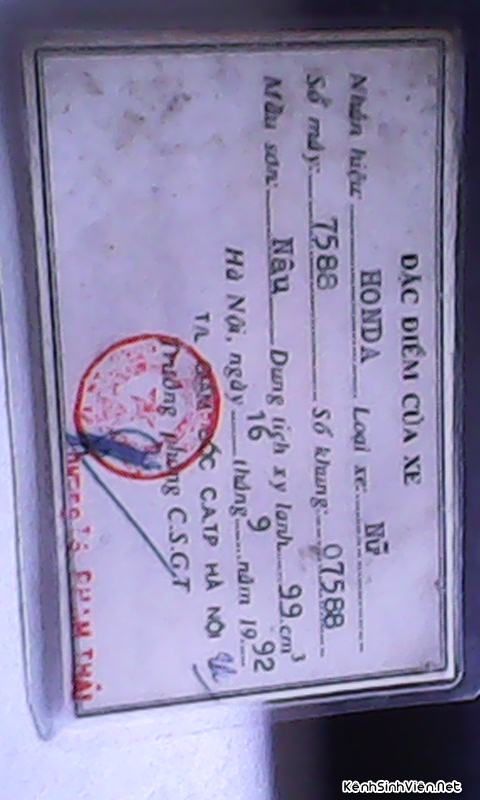 ĐẶC ĐIỂM CỦA XE
Nhãn hiệu HONDA Loại xe: Nữ
Số máy: 7588 Số khung: 07588
Mầu sơn: Nâu Dung tích xy lanh 99 cm3
Hà Nội, ngày 16 tháng 9 năm 1992
T/L GIÁM ĐỐC C.A.TP HÀ NỘI
Trưởng phòng C.S.G.T
PHẠM THÁI
KenhSinhVien.Net